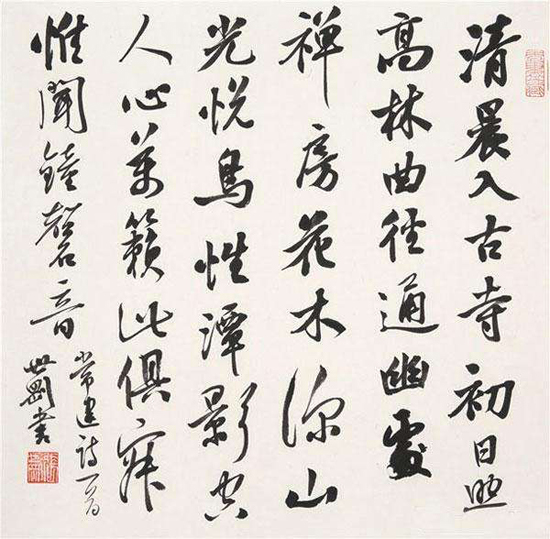 清晨入古寺初日照
高林曲径通幽處
禅房花木深山
光悦鳥性潭影空
人心萬籟此俱寂
惟聞鐘磬音
常建詩一首
世剛書